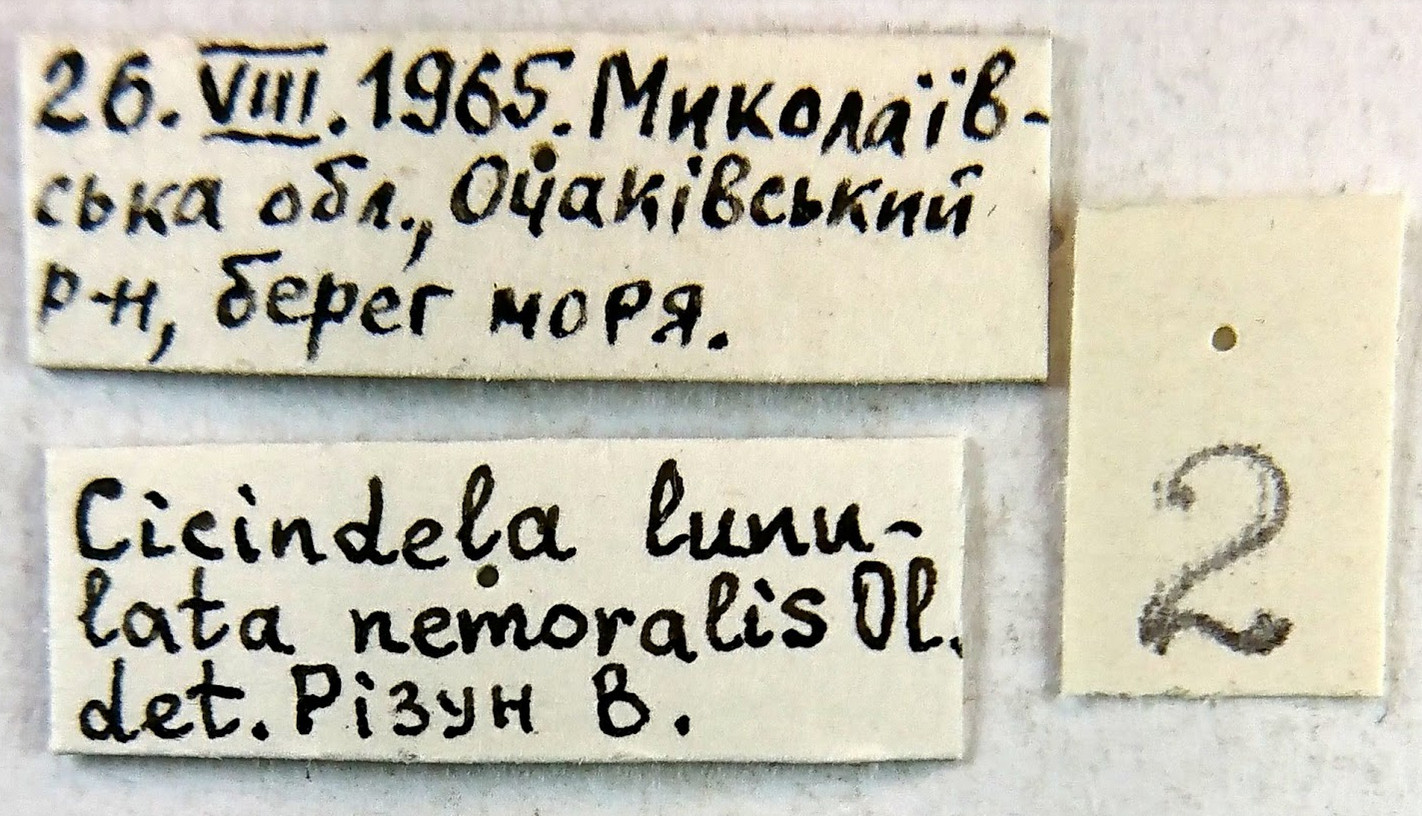 26.VIII.1965. Миколаїв-
ська обл., Очаківський
р-н, берег моря.
Cicindela lunu-
lata nemoralis Ol.
det. Різун В.
2